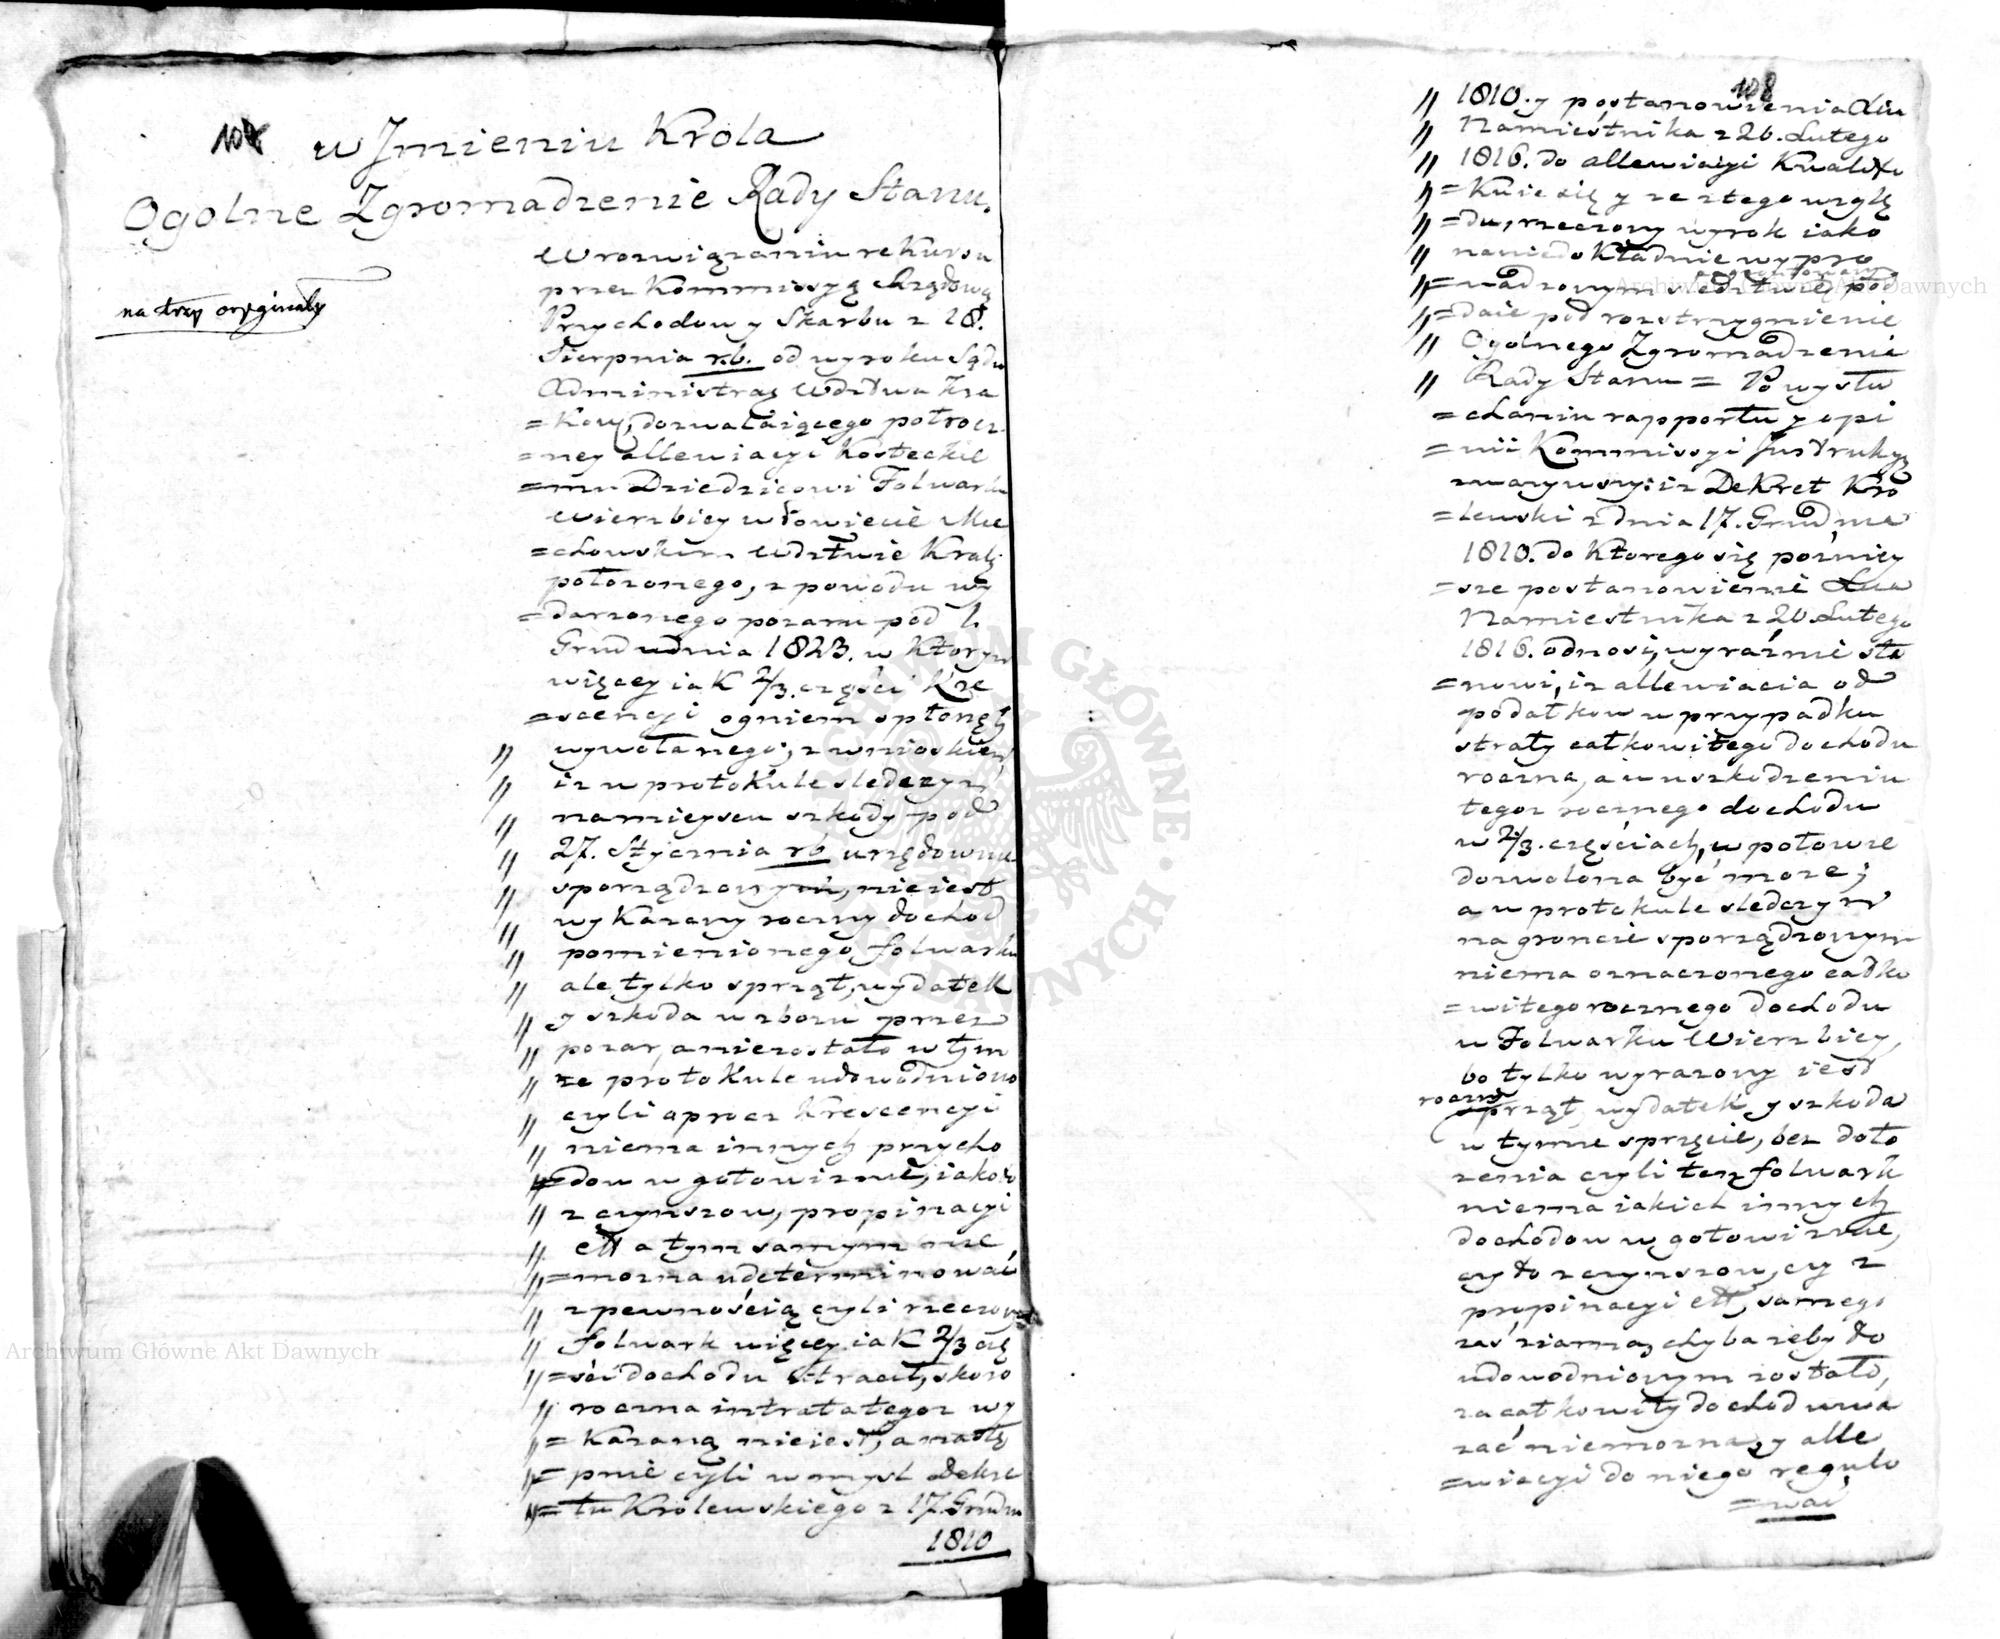 108
w Jmieniu Krola
Ogolne Zgromadzenie Rady Stanu.
na trzy oryginały
W rozwiązaniu rekursu
przez Kommissyą Rządową
Przychodow y Skarbu z 28.
Sierpnia r.b. od wyroku Sądu
Administrac Wdztwa Kra
=kow, dozwalaiącego połrocz
=ney allewiacyi Kosteckie
=mu Dziedzicowi Folwarku
Wierzbicy w Powiecie Mie
=chowskim Wdztwie Krak:
położonego, z powodu wy
=darzonego pożaru pod 1.
Grududnia 1823. w ktorym
więcey iak 2/3. części kre
=scencyi ogniem spłonęły
wywołanego; z wnioskiem
iż w protokule sledczym
na mieyscu szkody pod
27. Stycznia r.b. urzędownie
sporządzonym, nie iest
wykazany roczny dochod
pomienionego folwarku
ale tylko sprzęt, wydatek
y szkoda w zbożu przez
pożar, a nie zostało w tym
że protokule udowodniono
czyli oprocz Krescencyi
niema innych przycho
=dow w gotowiznie, iako to
z czynszow, propinacyi
ett a tym samym nie
=można udeterminować
z pewnością czyli rzeczony
folwark więcey iak 2/3 czę
=ści dochodu stracił, skoro
roczna intrata tegoż wy
=kazaną nie iest, a nastę
=pnie czyli w mysl dekre
=tu Krolewskiego z 17. Grudnia
1810
108
1810. y postanowienia Xcia
Namiestnika z 20. Lutego
1816. do allewiacyi kwalifi
=kuie się y że z tego wzglę
=du, rzeczony wyrok iako
na niedokładnie wypro
=wadzonym sledztwie, pod
=daie pod rozstrzygnienie
Ogolnego Zgromadzenia
Rady Stanu = Po wysłu
=chaniu rapportu y opi
=nii Kommissyi Jnstrukcyi
zważywszy: iż Dekret Kro
=lewski z dnia 17. Grudnia
1810. do ktorego się poźniey
=sze postanowienie Xcia
Namiestnika z 20. Lutego
1816. odnosi, wyraźnie sta
=nowi, iż allewiacia od
podatkow w przypadku
straty całkowitego dochodu
roczna, a w uszkodzeniu
tegoż rocznego dochodu
w 2/3. częściach, w połowie
dozwolona być może;
a w protokule sledczym
na groncie sporządzonym
niema oznaczonego całko
=witego rocznego dochodu
w Folwarku Wierzbicy,
bo tylko wyrażony iest
roczny
sprzęt, wydatek y szkoda
w tymże sprzęcie, bez doło
żenia czyli tenże folwark
niema iakich innych
dochodow w gotowiznie,
czy to z czynszow, czy z
propinacyi ett, samego
zaś ziarna, chyba żeby to
udowodnionym zostało,
za całkowity dochod uwa
żać niemożna, y alle
=wiacyi do niego regulo
=wać
Archiwum Główne Akt Dawnych
Archiwum Główne Akt Dawnych
ARCHIWUM GŁÓWNE AKT DAWNYCH